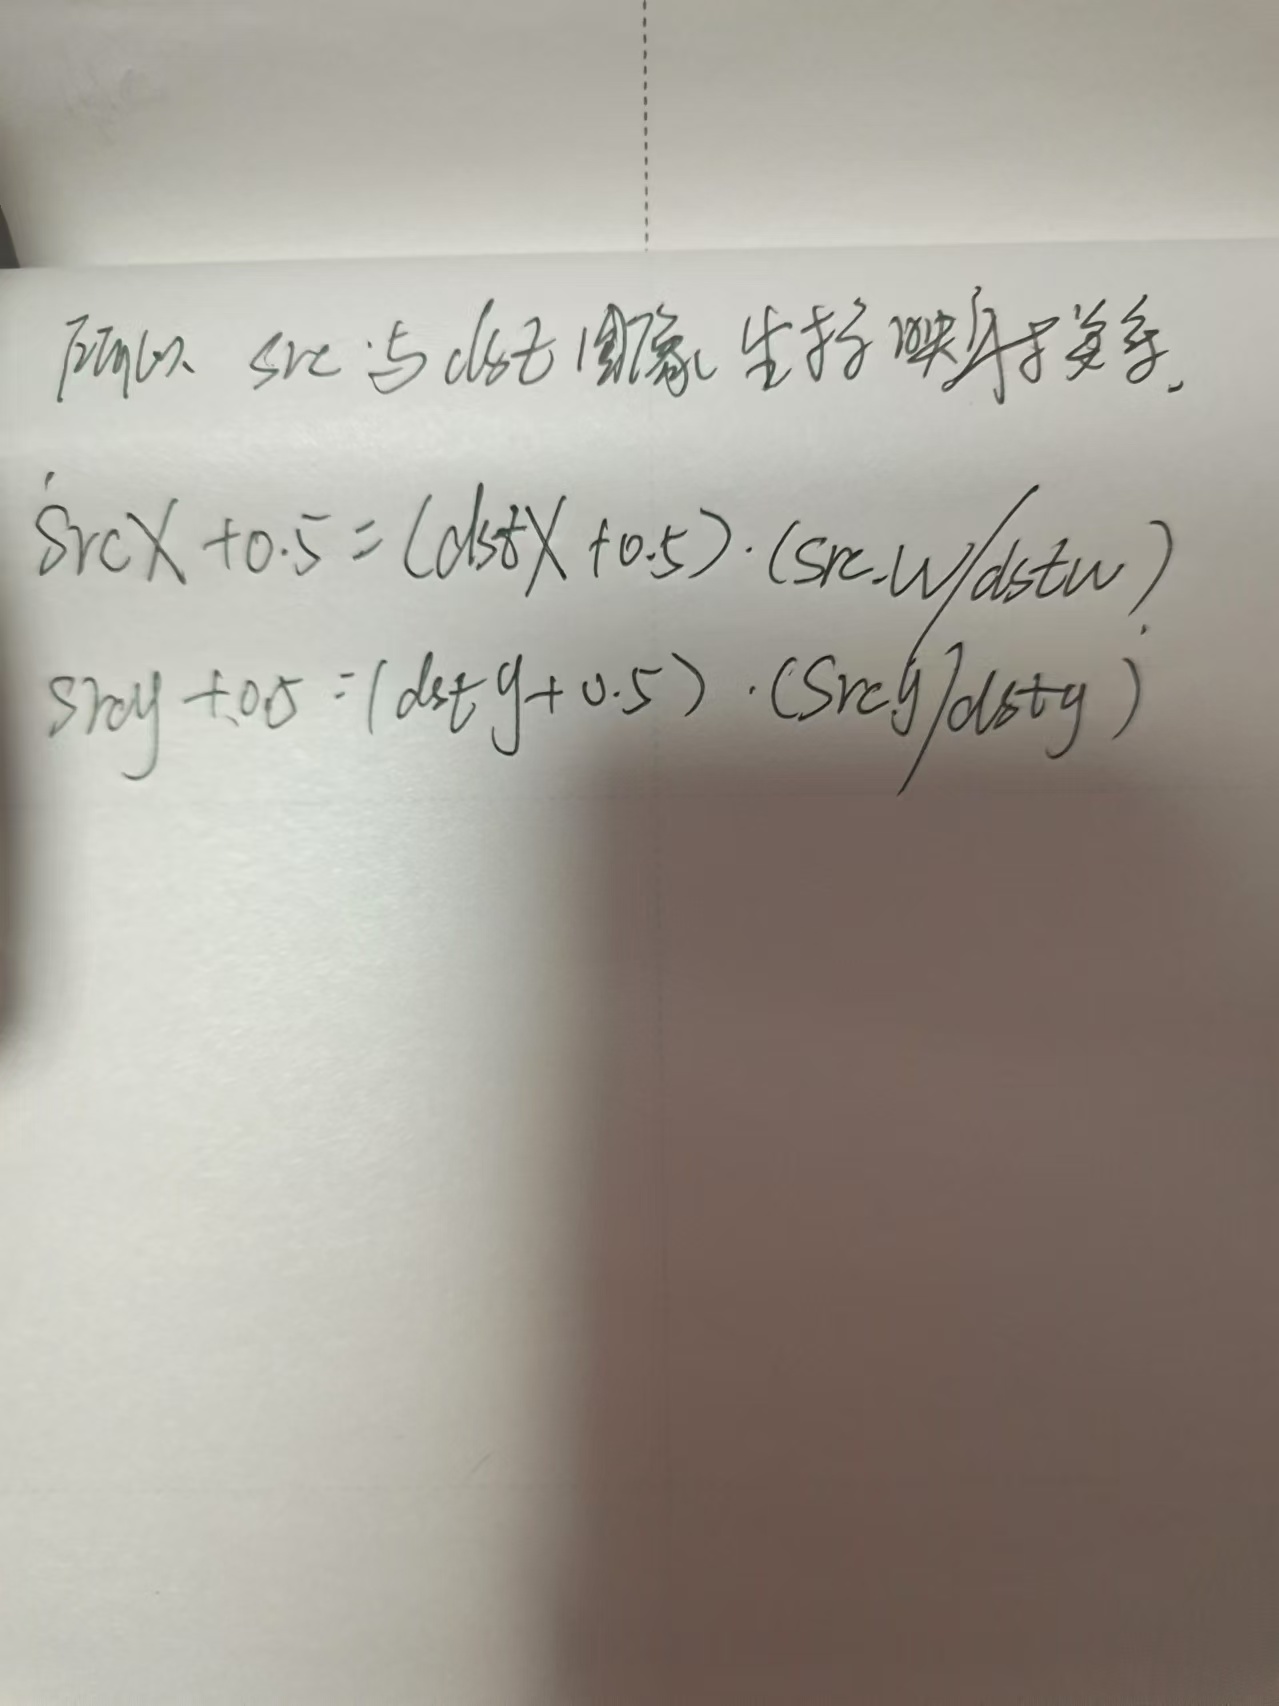 所以 src 与 dst 图像 坐标 映射关系.
srcX +0.5 = (dstX +0.5)·(src_w/dstw)
srcy +0.5 = (dsty+0.5)·(srcy/dsty)